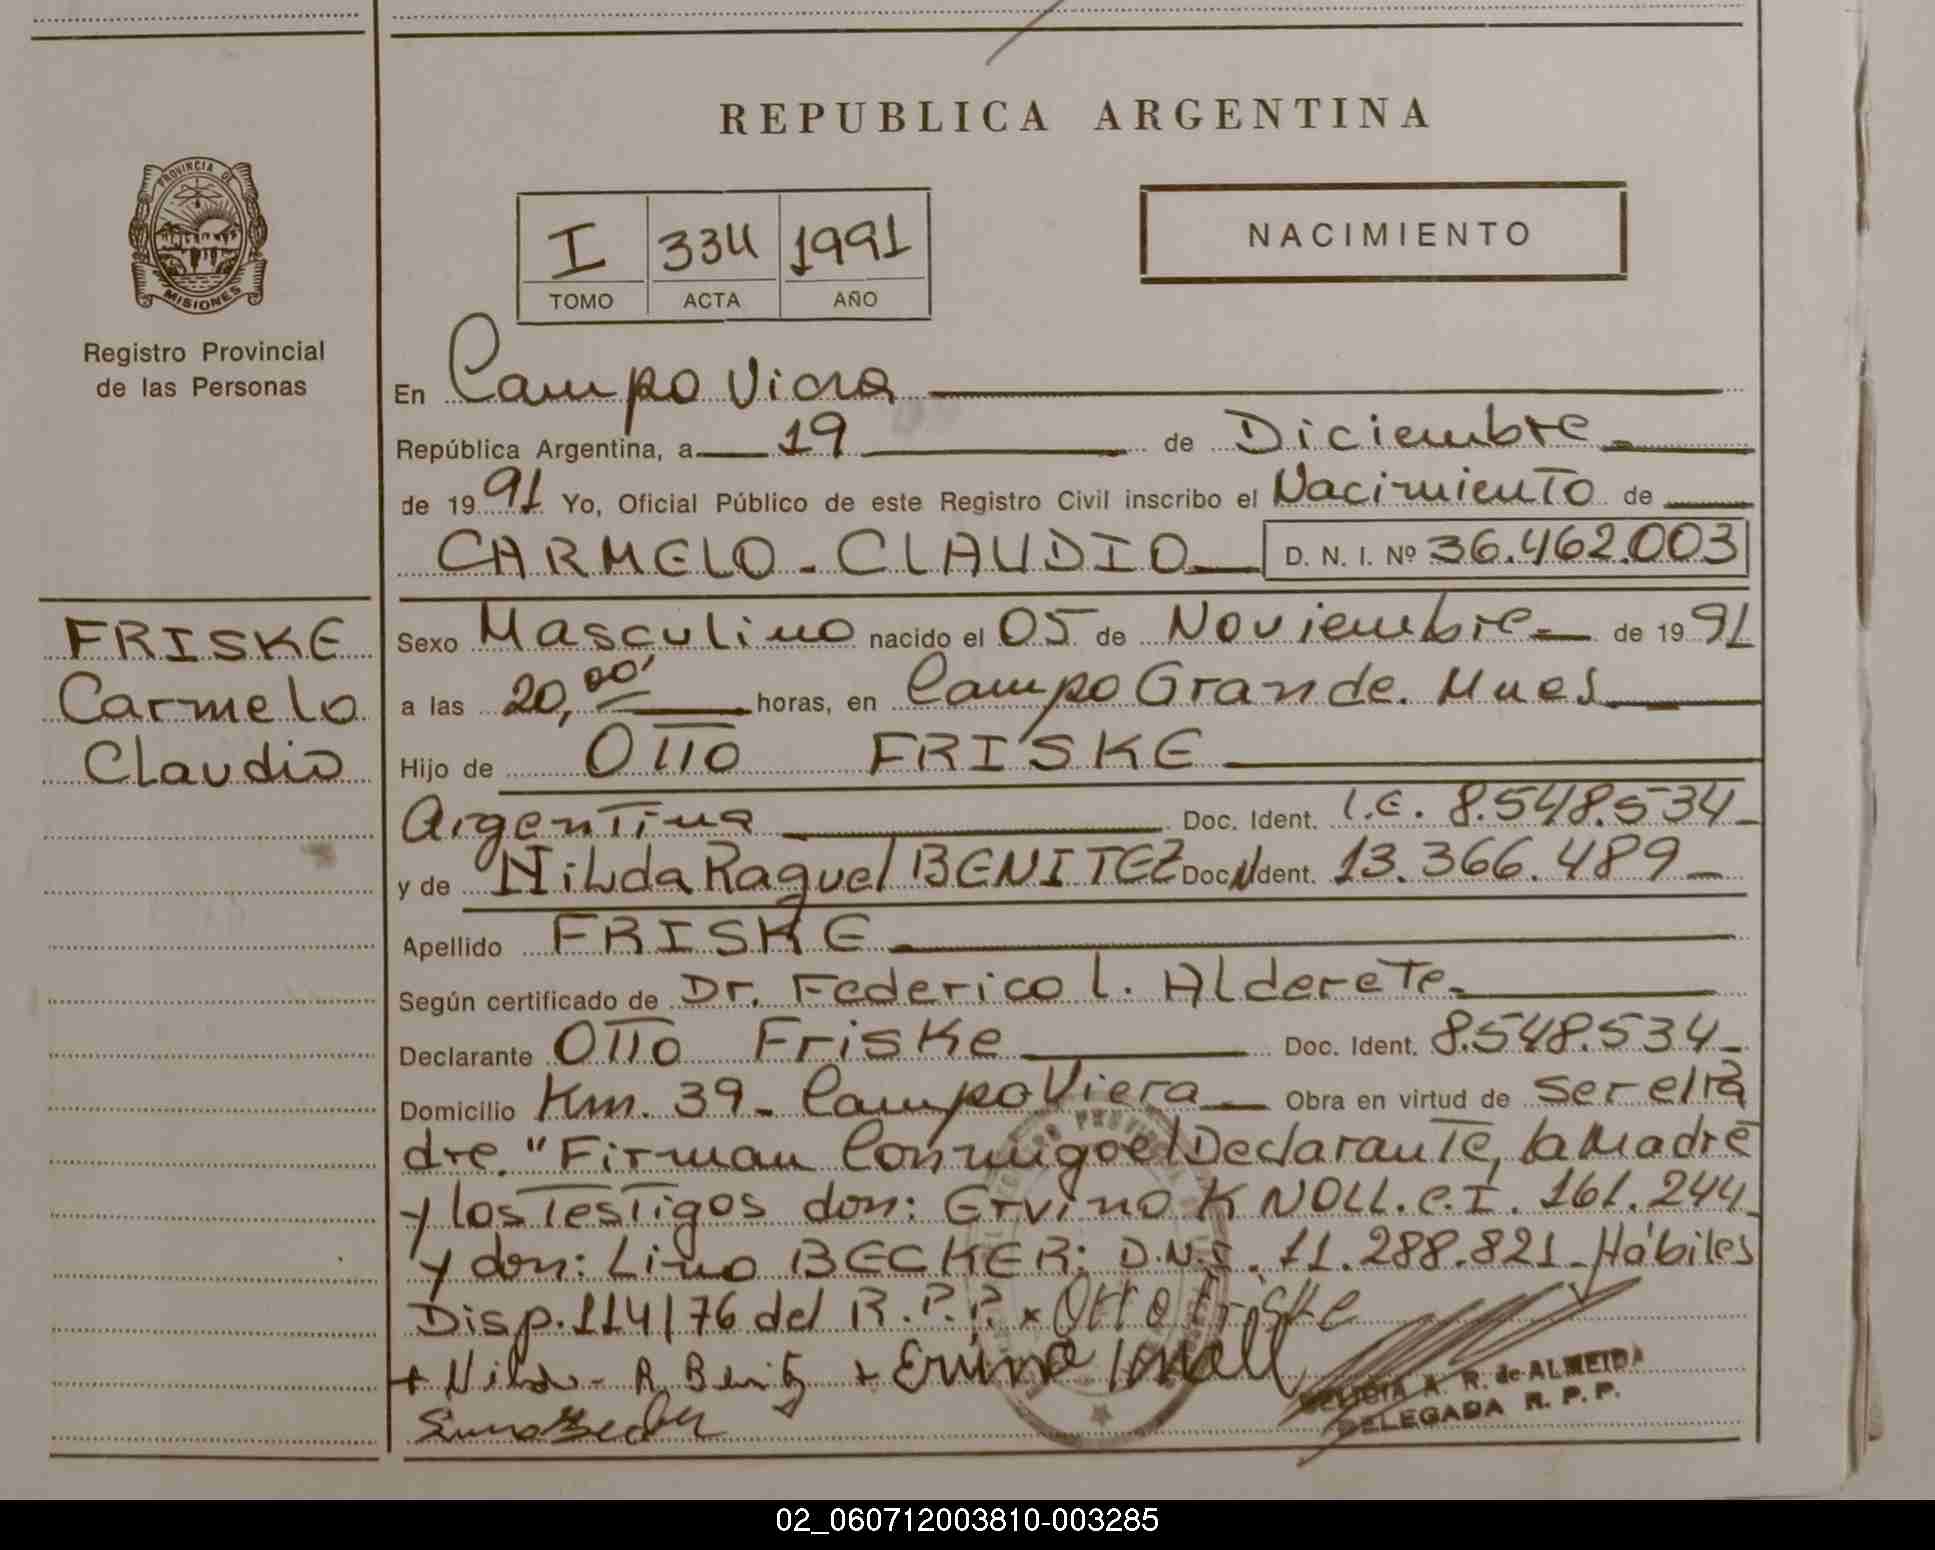 REPUBLICA ARGENTINA
PROVINCIA DE
MISIONES
Registro Provincial
de las Personas
I 334 1991
TOMO ACTA AÑO
NACIMIENTO
En Campo Viera
República Argentina, a 19 de Diciembre
de 1991 Yo, Oficial Público de este Registro Civil inscribo el Nacimiento de
CARMELO - CLAUDIO D. N. I. Nº 36.462.003
FRISKE
Carmelo
Claudio
Sexo Masculino nacido el 05 de Noviembre de 1991
a las 20,00' horas, en Campo Grande. Mnes
Hijo de Otto FRISKE
Argentina Doc. Ident. L.E. 8.548.534
y de Nilda Raquel BENITEZ Doc. Ident. 13.366.489
Apellido FRISKE
Según certificado de Dr. Federico L. Alderete
Declarante Otto Friske Doc. Ident. 8.548.534
Domicilio Km. 39 - Campo Viera Obra en virtud de ser el Pa
dre. "Firman Conmigo el Declarante, la Madre
y los Testigos don: Ervino KNOLL. C.I. 161.244
y don: Lino BECKER: D.N.I. 11.288.821 - Hábiles
Disp. 114/76 del R.P.P. x Otto Friske
+ Nilda - R Benitez + Ervino Knoll
Lino Becker
A. R. de ALMEIDA
DELEGADA R. P. P.
02_060712003810-003285